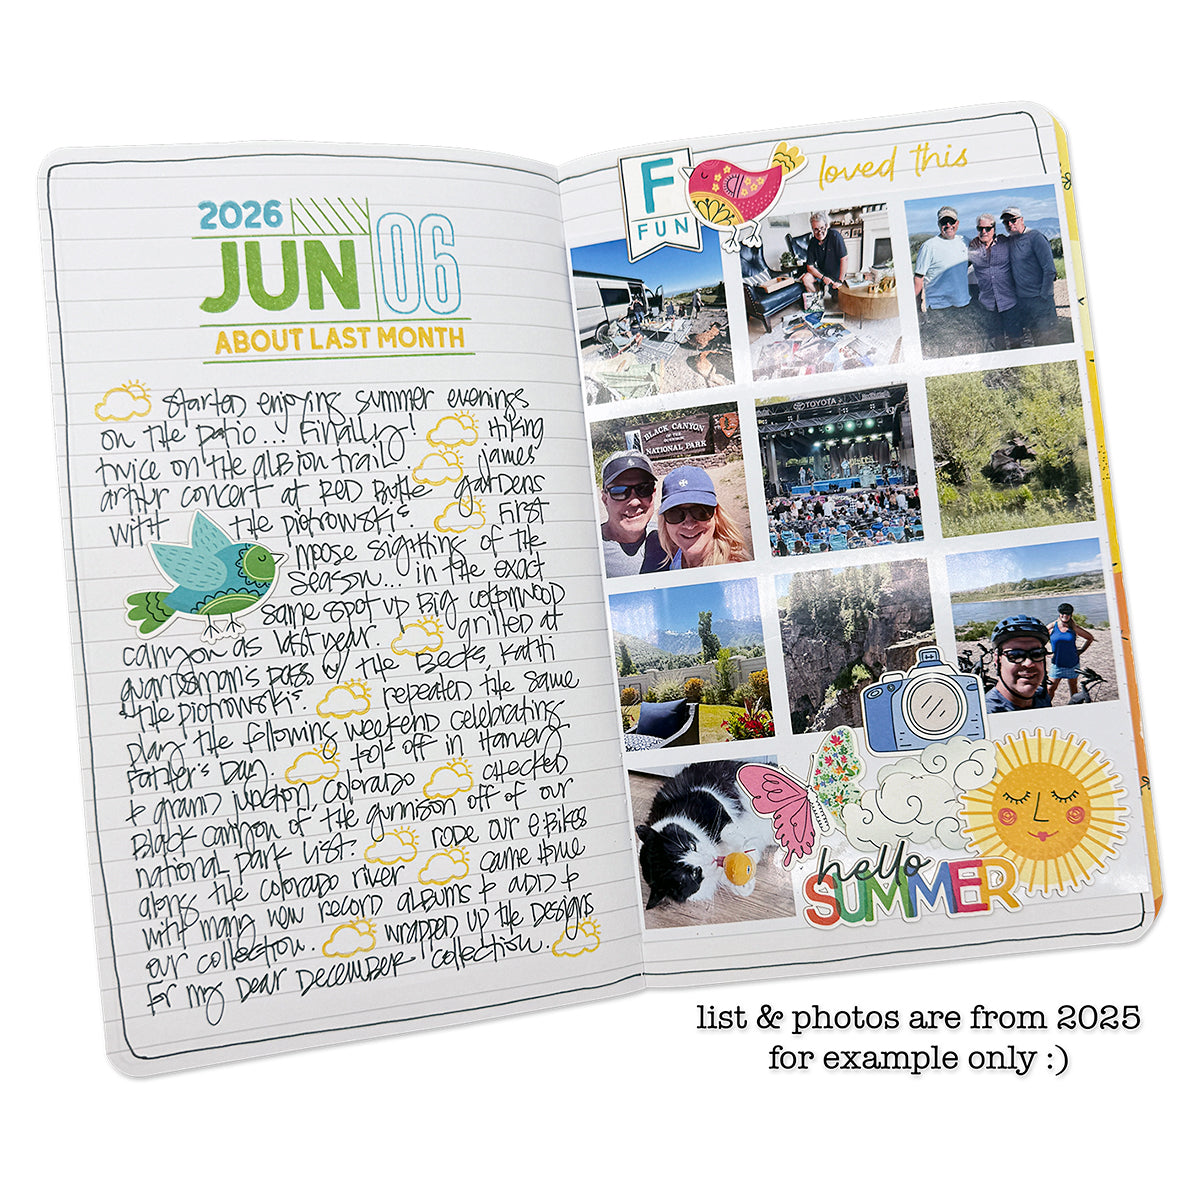 2026
JUN 06
ABOUT LAST MONTH
started enjoying summer evenings
on the patio... finally! Hiking
twice on the albion trail James
arthur concert at Red Butte gardens
with the piotrowski's. First
moose sighting of the
season... in the exact
same spot up Big cottonwood
canyon as last year. grilled at
guardsman's pass w/ the Becks, Kathi
& the piotrowski's. repeated the same
play the following weekend celebrating
Father's Day. took off in Harvey
to grand junction, colorado checked
Black canyon of the gunnison off of our
national park list. rode our e-Bikes
along the colorado river came Home
with many new record albums to add to
our collection. wrapped up the designs
for my Dear December collection.
F
FUN
loved this
BLACK CANYON
OF THE GUNNISON
NATIONAL PARK
TOYOTA
hello
SUMMER
list & photos are from 2025
for example only :)